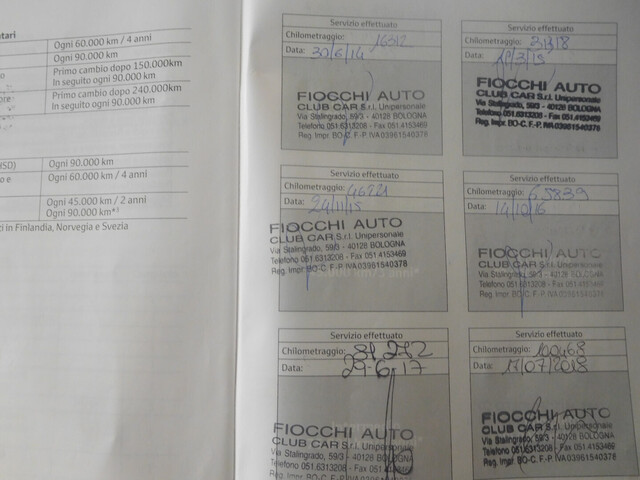 ntari
Ogni 60.000 km / 4 anni
Ogni 90.000 km
Primo cambio dopo 150.000km
In seguito ogni 90.000 km
Primo cambio dopo 240.000km
In seguito ogni 90.000 km
HSD)
Ogni 90.000 km
o e
Ogni 60.000 km / 4 anni
Ogni 45.000 km / 2 anni
Ogni 90.000 km*³
i in Finlandia, Norvegia e Svezia
Servizio effettuato
Chilometraggio: 16312
Data: 30/6/14
FIOCCHI AUTO
CLUB CAR S.r.l. Unipersonale
Via Stalingrado, 59/3 - 40128 BOLOGNA
Telefono 051.6313208 - Fax 051.4153469
Reg. Impr. BO-C. F.-P. IVA 03961540378
Servizio effettuato
Chilometraggio:
Data:
FIOCCHI AUTO
CLUB CAR S.r.l. Unipersonale
Via Stalingrado, 59/3 - 40128 BOLOGNA
Telefono 051.6313208 - Fax 051.4153469
Reg. Impr. BO-C. F.-P. IVA 03961540378
Servizio effettuato
Chilometraggio:
Data: 24/11/15
FIOCCHI AUTO
CLUB CAR S.r.l. Unipersonale
Via Stalingrado, 59/3 - 40128 BOLOGNA
Telefono 051.6313208 - Fax 051.4153469
Reg. Impr. BO-C. F.-P. IVA 03961540378
Servizio effettuato
Chilometraggio: 65839
Data: 14/10/16
FIOCCHI AUTO
CLUB CAR S.r.l. Unipersonale
Via Stalingrado, 59/3 - 40128 BOLOGNA
Telefono 051.6313208 - Fax 051.4153469
Reg. Impr. BO-C. F.-P. IVA 03961540378
Servizio effettuato
Chilometraggio: 81272
Data: 29-6-17
FIOCCHI AUTO
CLUB CAR S.r.l. Unipersonale
Via Stalingrado, 59/3 - 40128 BOLOGNA
Telefono 051.6313208 - Fax 051.4153469
Reg. Impr. BO-C. F.-P. IVA 03961540378
Servizio effettuato
Chilometraggio: 100468
Data: 17/07/2018
FIOCCHI AUTO
CLUB CAR S.r.l. Unipersonale
Via Stalingrado, 59/3 - 40128 BOLOGNA
Telefono 051.6313208 - Fax 051.4153469
Reg. Impr. BO-C. F.-P. IVA 03961540378